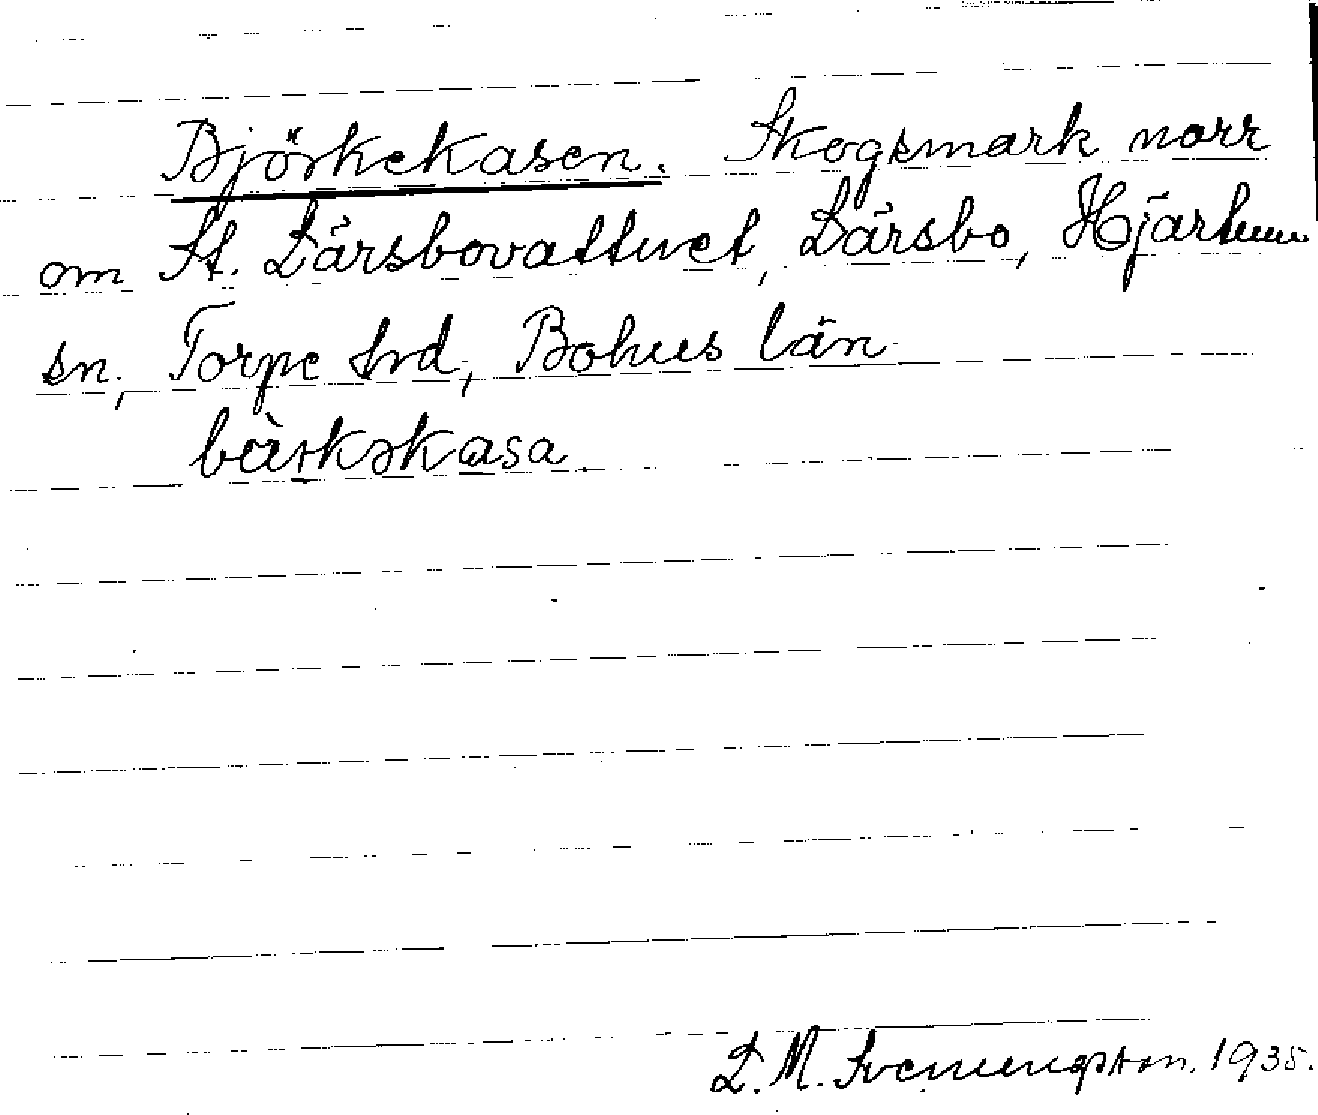 Björkekasen. Skogsmark norr
om St. Lärsbovattnet, Lärsbo, Hjärtum
sn, Torpe hrd, Bohus län
bàrkəkasa
D. M. Svenungsson. 1935.